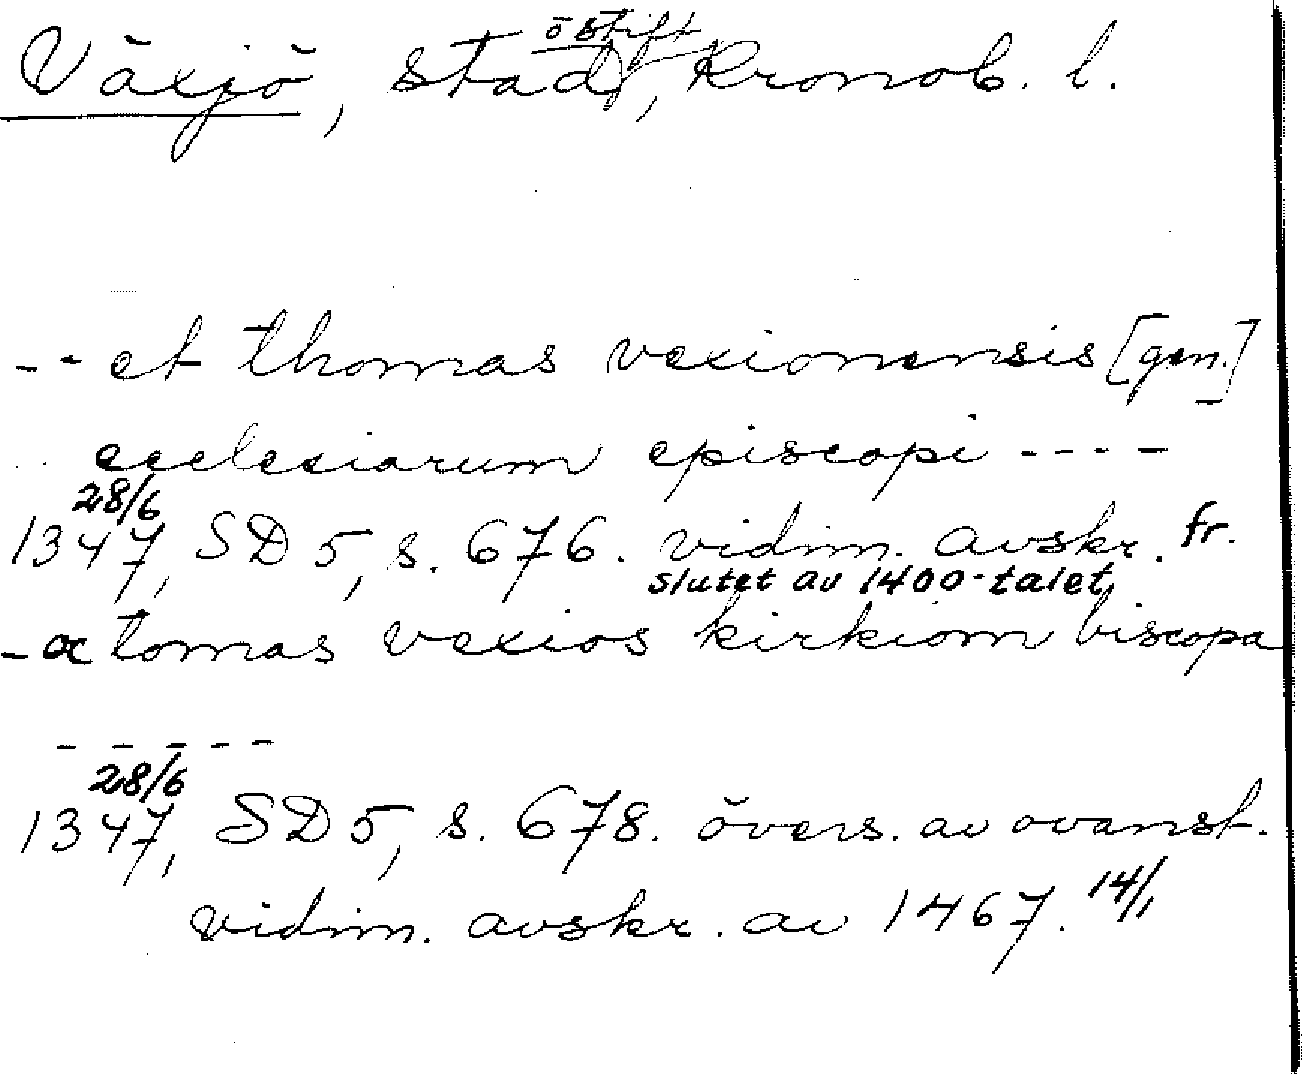 Växjö, stad, ö stift Kronob. l.
-- et thomas vexionensis [gen.]
ecclesiarum episcopi ----
1347 28/6, SD 5, s. 676. vidim. avskr. fr.
slutet av 1400-talet
- oc tomas vexios kirkiom biscopa
-----
1347 28/6, SD 5, s. 678. övers. av ovanst.
vidim. avskr. av 1467 14/1.